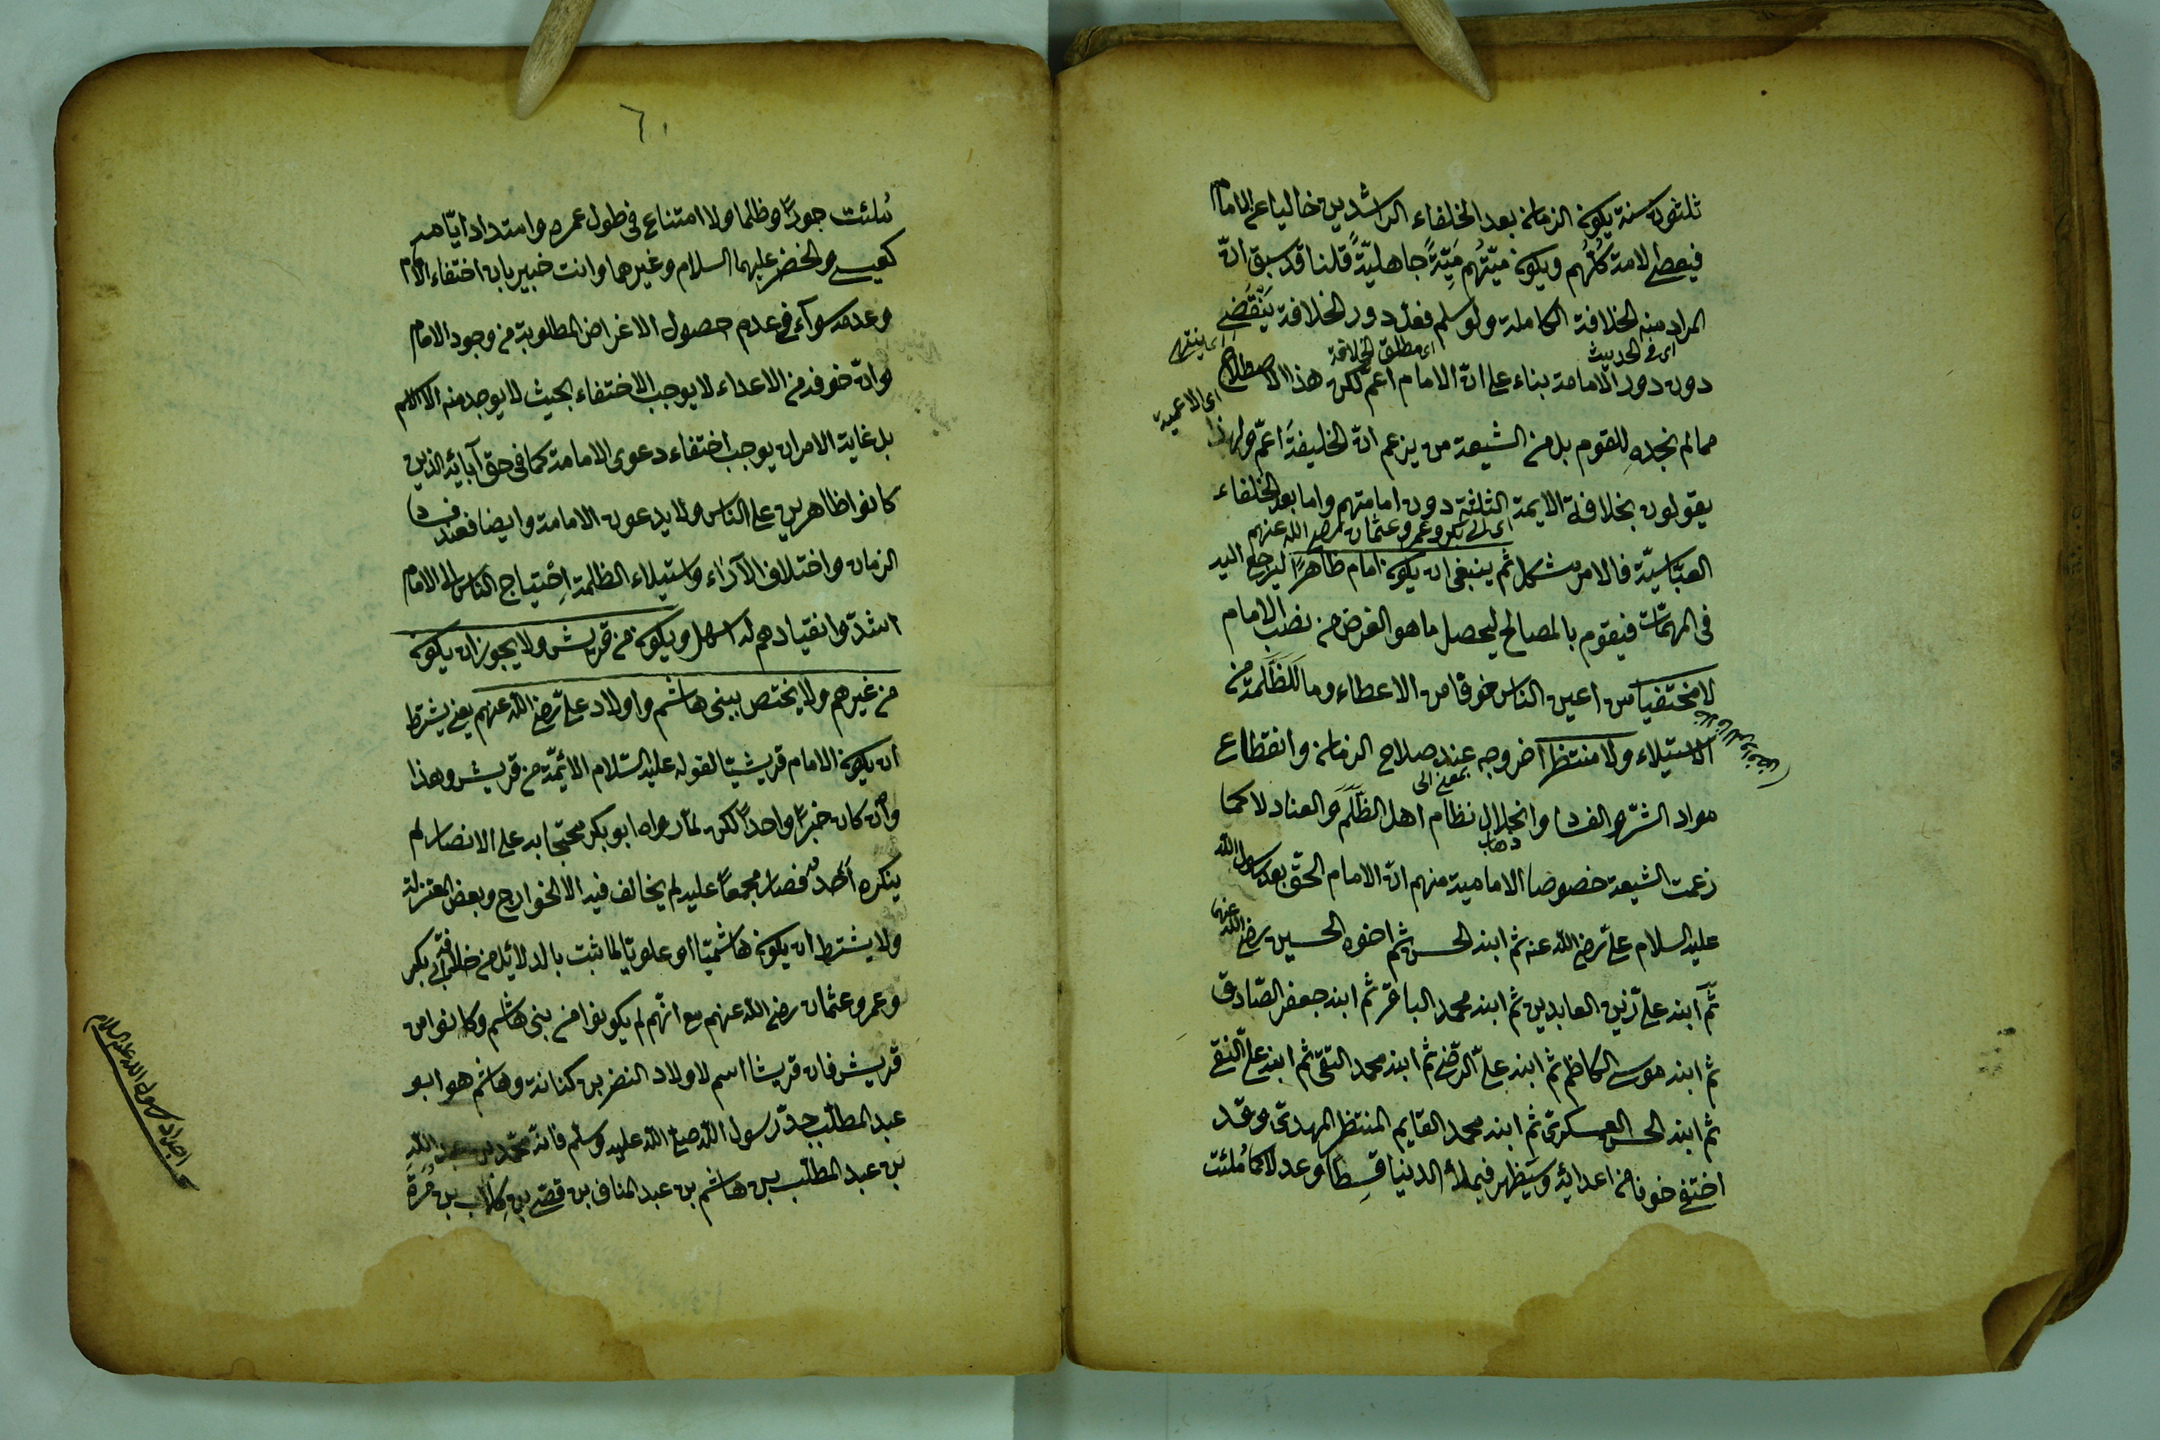 ثلثون سنة يكون الزمان بعد الخلفاء الراشدين خاليا عن الامام
فيعصى الامة كلُّهُم ويكون مَيْتَتُهم مَيِّتَةً جاهليّةً قلنا قد سبق انّ
المراد منه الخلافة الكاملة ولو سلم فعلّ دور الخلافة يَنْقَضِي
اى ينتهى
اى فى الحديث
اى مطلق الخلافة
دون دور الامامة بناء على انّ الامام اعم لكن هذا الاصطلاح
اى الاعمية
مما لم نجده للقوم بل من الشيعة من يزعم انّ الخليفةَ اعمّ ولهذا
يقولون بخلافة الايمة الثلثة دون امامتهم واما بعد الخلفاء
اى ابى بكر وعمر وعثمان رضى الله عنهم
العبّاسيّة فالامر مشكل ثم ينبغى ان يكون امام ظاهرًا ليرجع اليه
فى المهمّات فيقوم بالمصالح ليحصل ما هو الغرض من نصب الامام
لا مختفيا من اعين الناس خوفا من الاعطاء وما للظَّلَمة من
الاستيلاء ولا منتظرا خروجه عند صلاح الزمان وانقطاع
بمعنى الى
مواد الشرّ والفساد وانحلال نظام اهل الظَّلَم والعناد لا كما
ذهاب
زعمت الشيعة خصوصا الامامية منهم انّ الامام الحقّ بعد رسول الله
عليه السلام علىّ رضى الله عنه ثم ابنه الحسن ثم اخوه الحسين رضى الله عنهم
ثمّ ابنه علىّ زين العابدين ثم ابنه محمد الباقر ثم ابنه جعفر الصّادق
ثم ابنه موسى الكاظم ثم ابنه علىّ الرّضى ثم ابنه محمد التقى ثم ابنه علىّ النقى
ثم ابنه الحسن العسكرىّ ثم ابنه محمد القايم المنتظر المهدىّ وقد
اختفى خوفا من اعدائه وسَيَظهر فيملأ الدنيا قِسطًا وعدلا كما مُلئت
٦١
مُلئت جورًا وظلما ولا امتناع فى طول عمره وامتداد ايّامه
كعيسى والخضر عليهما السلام وغيرهما وانت خبير بان اختفاء الامام
وعدمه سواء فى عدم حصول الاغراض المطلوبة من وجود الامام
وانّ خوفه من الاعداء لا يوجب الاختفاء بحيث لا يوجد منه الا الاسم
بل غاية الامر ان يوجب اختفاء دعوى الامامة كما فى حق آبائه الذين
كانوا ظاهرين على الناس ولا يدعون الامامة وايضا فعند فساد
الزمان واختلاف الآراء واستيلاء الظلمة اِحْتياج الناس الى الامام
اشدّ وانقيادهم له اسهل ويكون من قريش ولا يجوز ان يكون
من غيرهم ولا يختص ببنى هاشم واولاد علىّ رضى الله عنهم يعنى يشترط
ان يكون الامام قريشيّا لقوله عليه السّلام الائمّة من قريش وهذا
وان كان خبرًا واحدًا لكن لمّا رواه ابو بكر محتجا به على الانصار لم
ينكره احدٌ فصار مجمعًا عليه لم يخالف فيه الا الخوارج وبعض المعتزلة
ولا يشترط ان يكون هاشميّا او علويّا لما ثبت بالدلائل من خلافة ابى بكر
وعمر وعثمان رضى الله عنهم مع انّهم لم يكونوا من بنى هاشم وكانوا من
قريش فان قريشا اسم لاولاد النضر بن كنانة وهاشم هو ابو
عبد المطلّب جدّ رسول الله صلى الله عليه وسلم فانه محمّد بن عبد الله
بن عبد المطلّب بن هاشم بن عبد المناف بن قصىّ بن كِلاب بن مُرّة
اجداد رسول الله عليه السلام